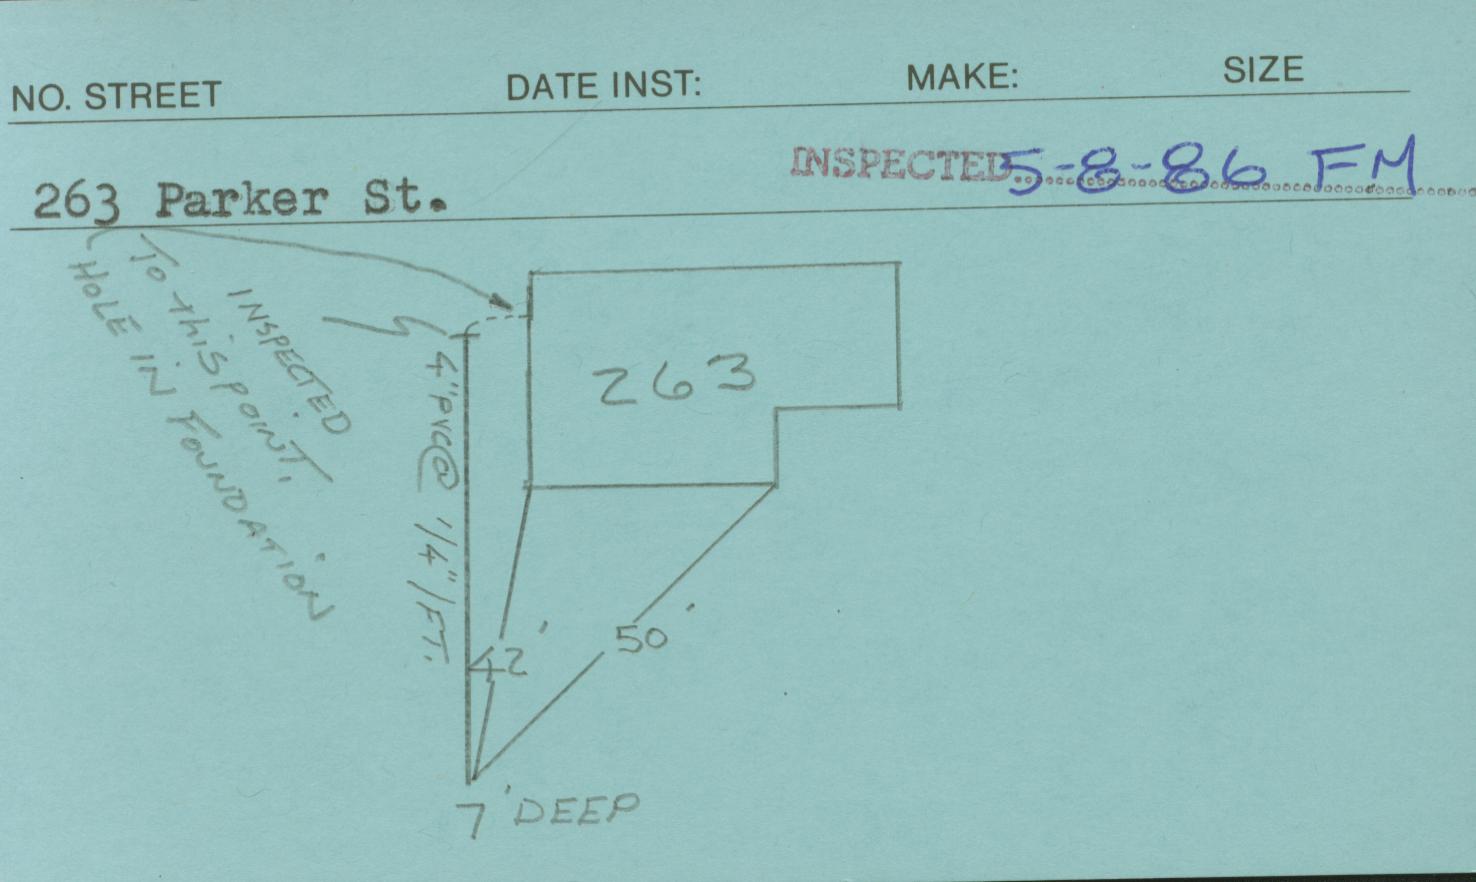 NO. STREET DATE INST: MAKE: SIZE
263 Parker St. INSPECTED 5-8-86 FM
INSPECTED
To this POINT.
HOLE IN FOUNDATION
263
4" PVC @ 1/4"/FT.
42'
50'
7' DEEP